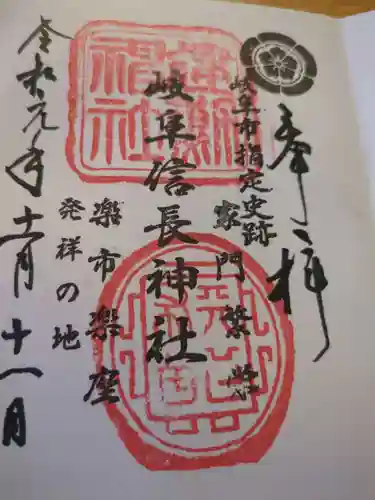 奉拝
岐阜市指定史跡
家門繁栄
岐阜信長神社
楽市楽座
発祥の地
令和元年十一月十一日